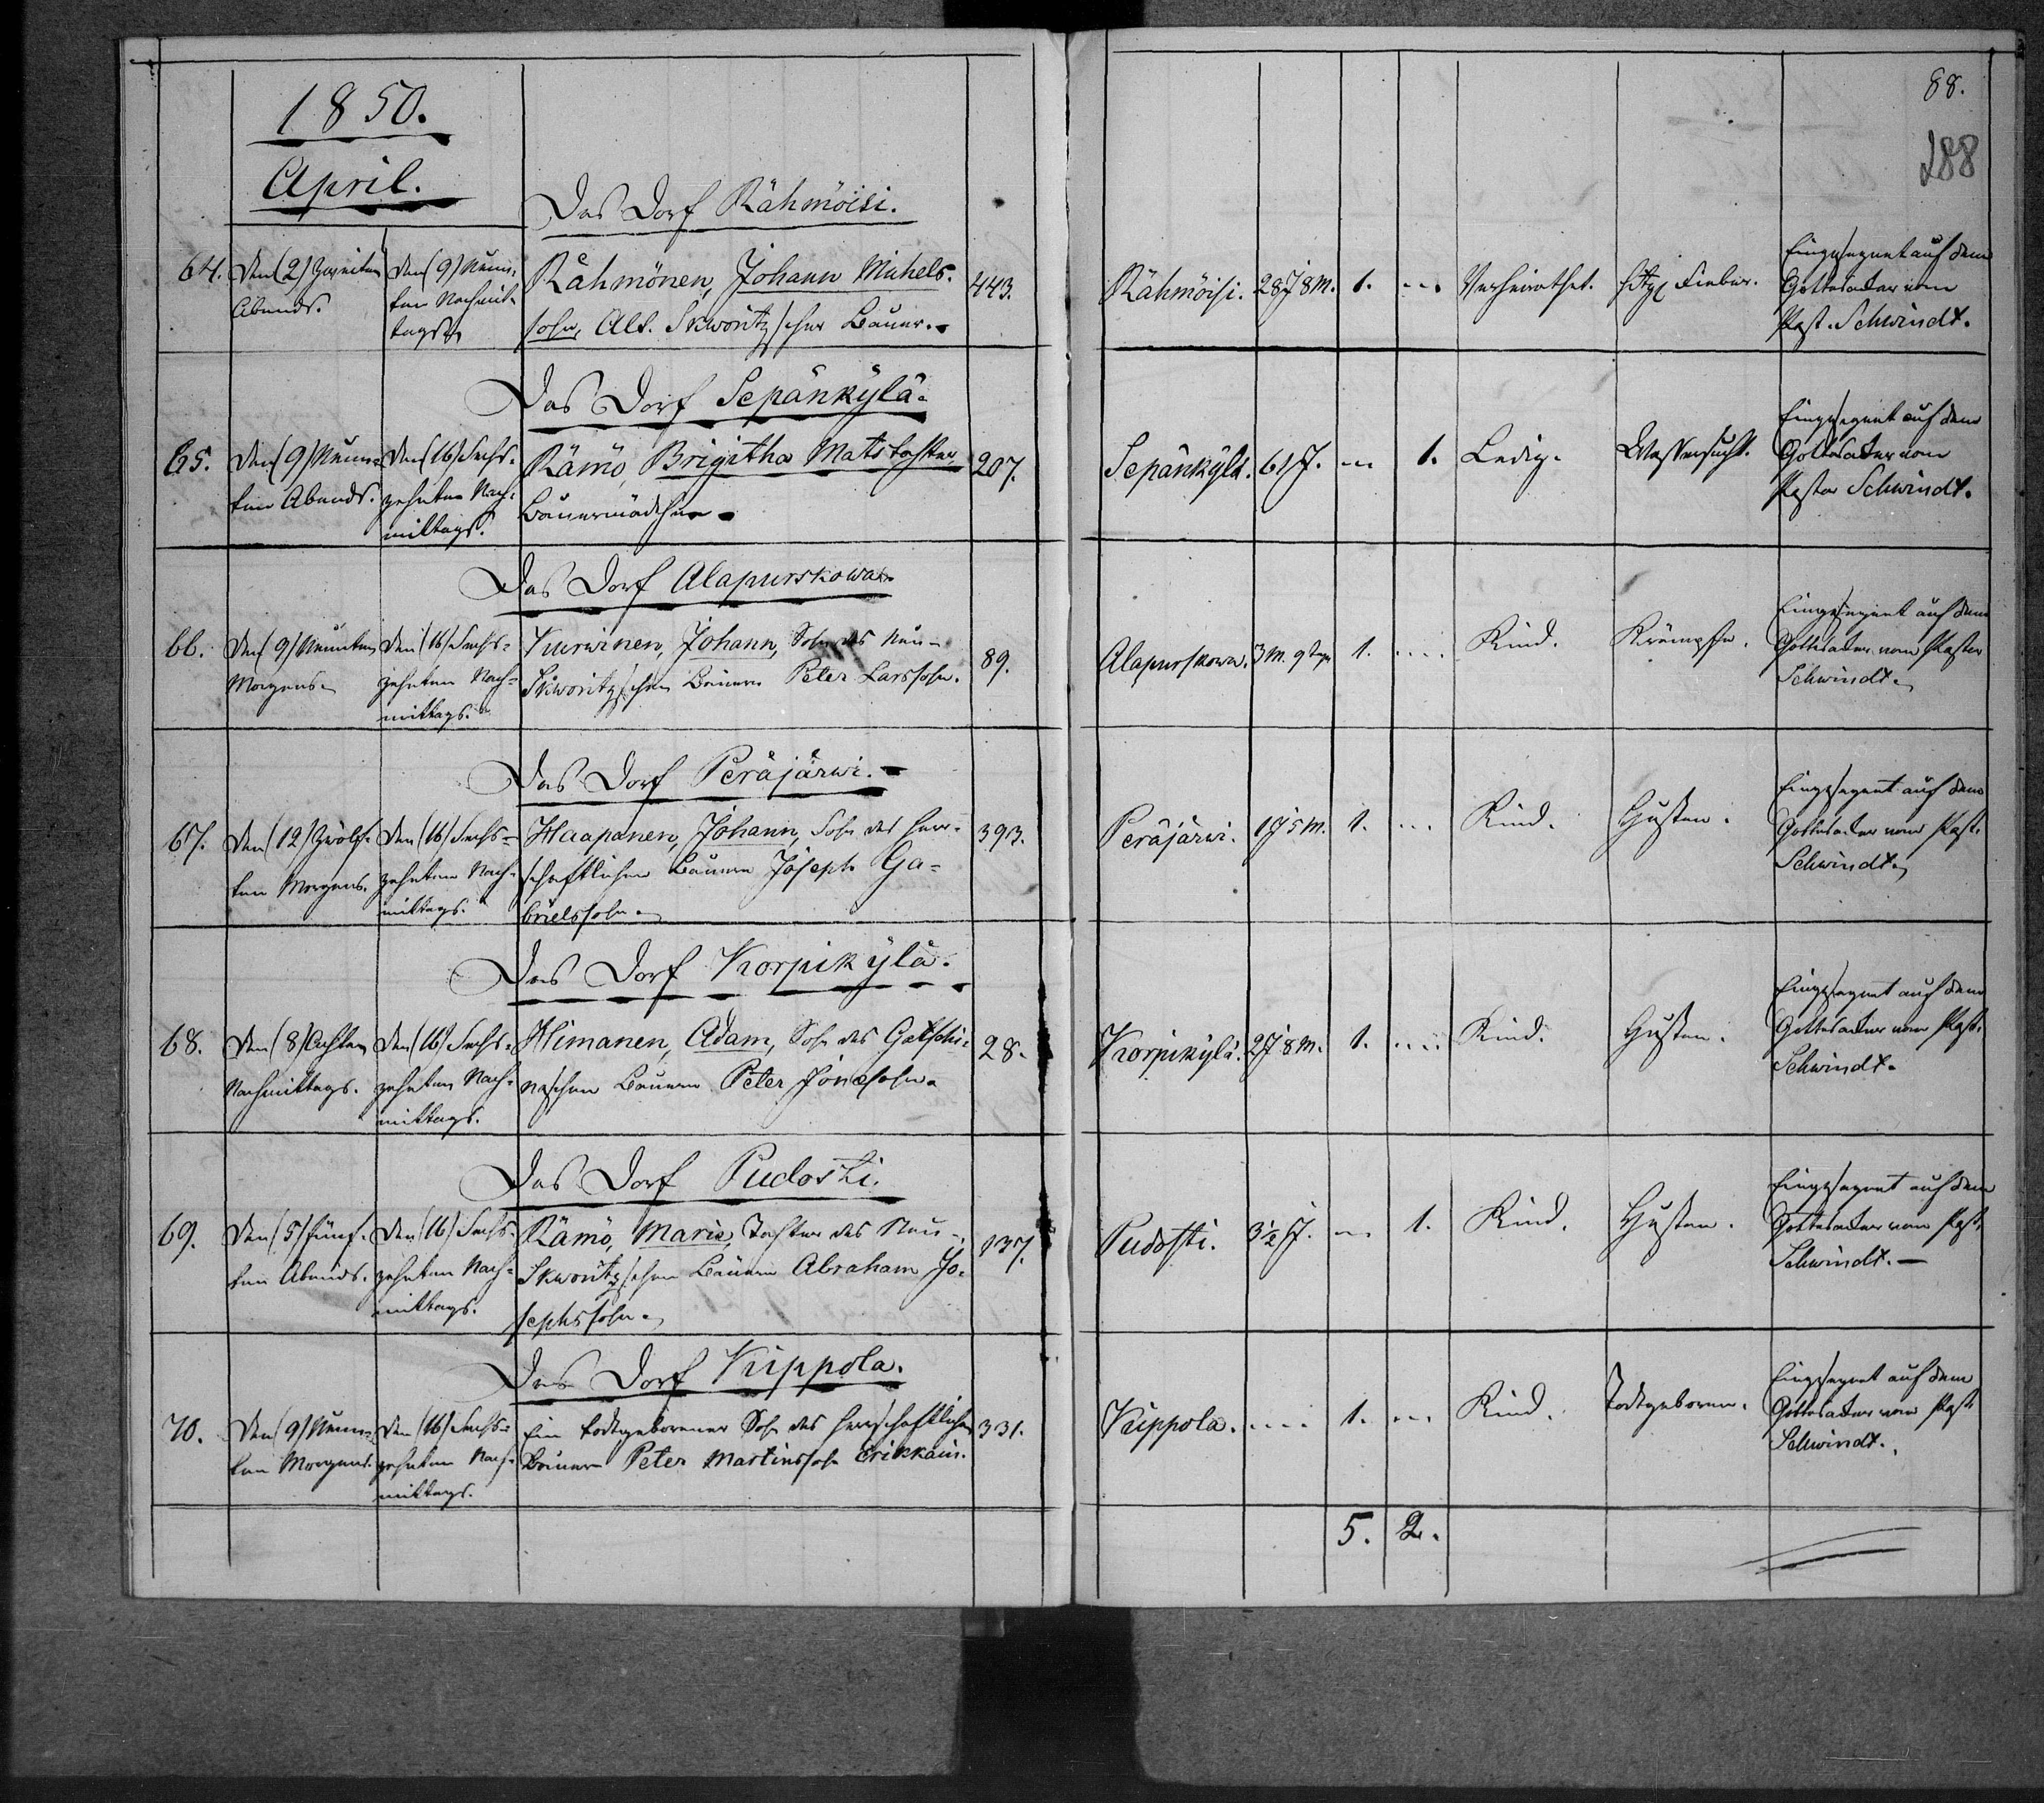 1850.
April.
88.
288
Das Dorf Rähmöisi.
64. Den (2) Zweiten
Abends.
Den (9) Neun-
ten Nachmit-
tags.
Rähmönen, Johann Michels-
sohn, Alt. Skworitzscher Bauer.
443.
Rähmöisi. 28 J 8 M. 1. Verheirathet. Fieber.
Eingesegnet auf dem
Gottesacker vom
Past. Schwindt.
Das Dorf Sepänkylä.
65. Den (9) Neun-
ten Abends.
Den (16) Sechs-
zehnten Nach-
mittags.
Rämö, Brigitha Matstochter,
Bauermädchen.
207.
Sepänkylä. 61 J. 1. Ledig. Wassersucht.
Eingesegnet auf dem
Gottesacker vom
Pastor Schwindt.
Das Dorf Alapurskowa.
66. Den (9) Neunten
Morgens.
Den (16) Sechs-
zehnten Nach-
mittags.
Kurwinen, Johann, Sohn des Neu-
Skworitzschen Bauern Peter Larssohn.
89.
Alapurskowa. 3 M. 9 Tage 1. Kind. Krämpfe.
Eingesegnet auf dem
Gottesacker vom Pastor
Schwindt.
Das Dorf Peräjärwi.
67. Den (12) Zwölf-
ten Morgens.
Den (16) Sechs-
zehnten Nach-
mittags.
Haapanen, Johann, Sohn des herr-
schaftlichen Bauern Joseph Ga-
brielssohn.
393.
Peräjärwi. 1 J 5 M. 1. Kind. Husten.
Eingesegnet auf dem
Gottesacker vom Past.
Schwindt.
Das Dorf Korpikylä.
68. Den (8) Achten
Nachmittags.
Den (16) Sechs-
zehnten Nach-
mittags.
Himanen, Adam, Sohn des Gatschi-
naschen Bauern Peter Jonassohn.
28.
Korpikylä. 2 J 8 M. 1. Kind. Husten.
Eingesegnet auf dem
Gottesacker vom Past.
Schwindt.
Das Dorf Pudosti.
69. Den (5) Fünf-
ten Abends.
Den (16) Sechs-
zehnten Nach-
mittags.
Rämö, Marie, Tochter des Neu-
Skworitzschen Bauern Abraham Jo-
sephssohn.
137.
Pudosti. 3½ J. 1. Kind. Husten.
Eingesegnet auf dem
Gottesacker vom Past.
Schwindt.
Das Dorf Kuppola.
70. Den (9) Neun-
ten Morgens.
Den (16) Sechs-
zehnten Nach-
mittags.
Ein todtgeborener Sohn des herrschaftlichen
Bauern Peter Martinssohn Erikkain.
331.
Kuppola. 1. Kind. Todtgeboren.
Eingesegnet auf dem
Gottesacker vom Past.
Schwindt.
5. 2.